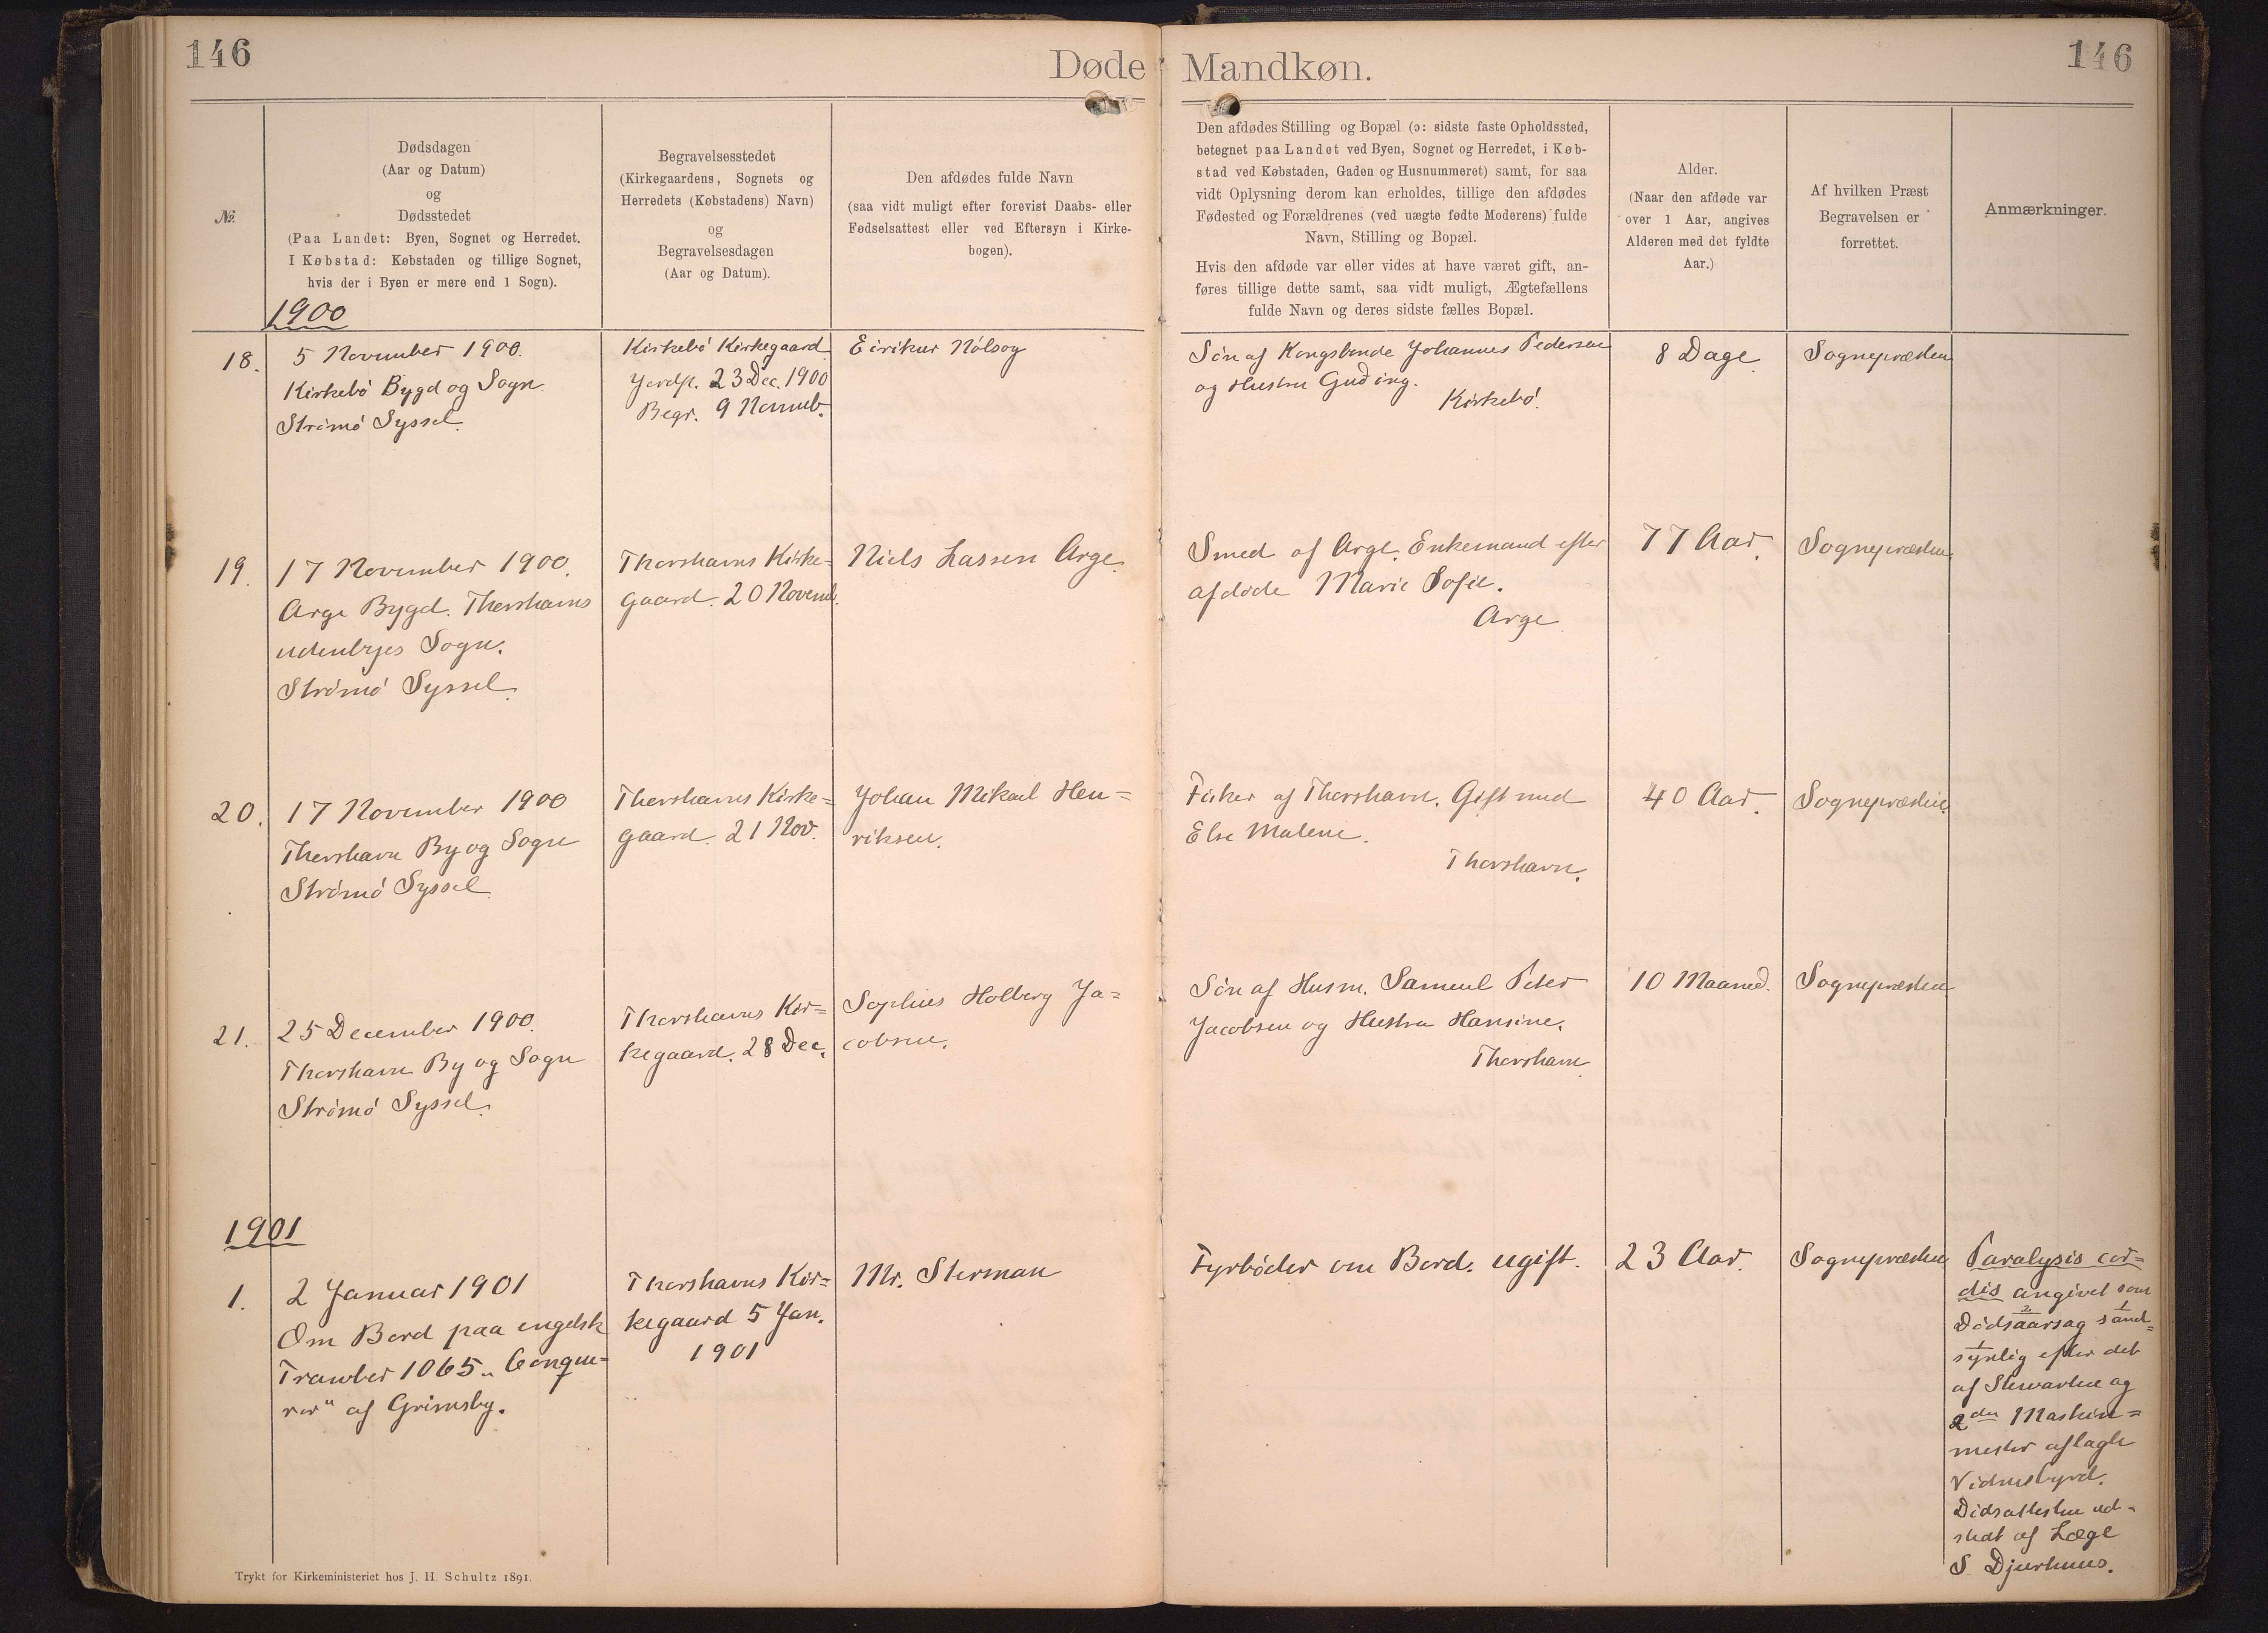 146
Døde
Mandkøn.
146
№
Dødsdagen
(Aar og Datum)
og
Dødsstedet
(Paa Landet: Byen, Sognet og Herredet.
I Købstad: Købstaden og tillige Sognet,
hvis der i Byen er mere end 1 Sogn).
Begravelsesstedet
(Kirkegaardens, Sognets og
Herredets (Købstadens) Navn)
og
Begravelsesdagen
(Aar og Datum).
Den afdødes fulde Navn
(saa vidt muligt efter forevist Daabs- eller
Fødselsattest eller ved Eftersyn i Kirke-
bogen).
Den afdødes Stilling og Bopæl (ɔ: sidste faste Opholdssted,
betegnet paa Landet ved Byen, Sognet og Herredet, i Køb-
stad ved Købstaden, Gaden og Husnummeret) samt, for saa
vidt Oplysning derom kan erholdes, tillige den afdødes
Fødested og Forældrenes (ved uægte fødte Moderens) fulde
Navn, Stilling og Bopæl.
Hvis den afdøde var eller vides at have været gift, an-
føres tillige dette samt, saa vidt muligt, Ægtefællens
fulde Navn og deres sidste fælles Bopæl.
Alder.
(Naar den afdøde var
over 1 Aar, angives
Alderen med det fyldte
Aar.)
Af hvilken Præst
Begravelsen er
forrettet.
Anmærkninger.
1900
18.
5 November 1900.
Kirkebø Bygd og Sogn.
Strømø Syssel.
Kirkebø Kirkegaard
Jordp. 23 Dec. 1900
Begr. 9 Novemb.
Eirikur Nólsoy
Søn af Kongsbonde Johannes Pedersen
og Hustru Guðing.
Kirkebø.
8 Dage.
Sognepræsten
19.
17 November 1900.
Arge Bygd. Thorshavns
udenbyes Sogn.
Strømø Syssel.
Thorshavns Kirke=
gaard. 20 Novemb.
Niels Lassen Arge.
Smed af Arge. Enkemand efter
afdøde Marie Sofie.
Arge
77 Aar.
Sognepræsten
20.
17 November 1900
Thorshavn By og Sogn
Strømø Syssel
Thorshavns Kirke=
gaard. 21 Nov.
Johan Mikael Hen=
riksen.
Fisker af Thorshavn. Gift med
Else Malene.
Thorshavn.
40 Aar.
Sognepræsten
21.
25 December 1900.
Thorshavn By og Sogn
Strømø Syssel.
Thorshavns Kir=
kegaard. 28 Dec.
Sophus Holberg Ja=
cobsen.
Søn af Husm. Samuel Peter
Jacobsen og Hustru Hansine.
Thorshavn
10 Maaned.
Sognepræsten
1901
1.
2 Januar 1901
Om Bord paa engelsk
Trawber 1065 „Conque=
ror“ af Grimsby.
Thorshavns Kir=
kegaard 5 Jan.
1901
Mr. Sherman
Fyrbøder om Bord. ugift.
23 Aar.
Sognepræsten
Paralysis cor=
dis angivet som
Dødsaarsag sand=
synlig efter det
af Stewarten og
2den Maskin=
mester aflagte
Vidnesbyrd.
Dødsattesten ud-
stedt af Læge
S Djurhuus.
Trykt for Kirkeministeriet hos J. H. Schultz 1891.